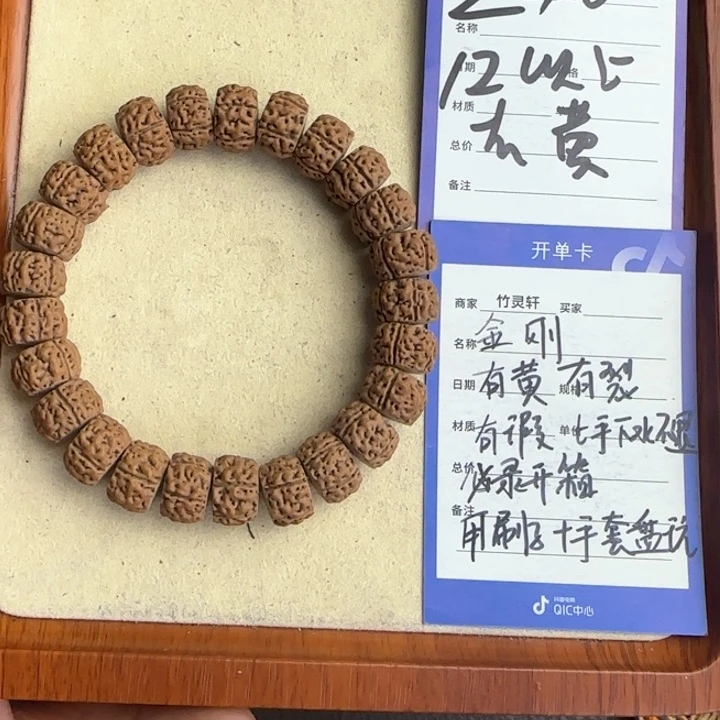 名称
12以上
期 格
材质
有黄
总价
备注
开单卡
商家 竹灵轩 买家
名称 金刚
日期 有黄 规格 有裂
材质 有瑕 单价 上手下水不退
总价 必录开箱
备注
用刷子+手套盘玩
抖音电商
QIC中心